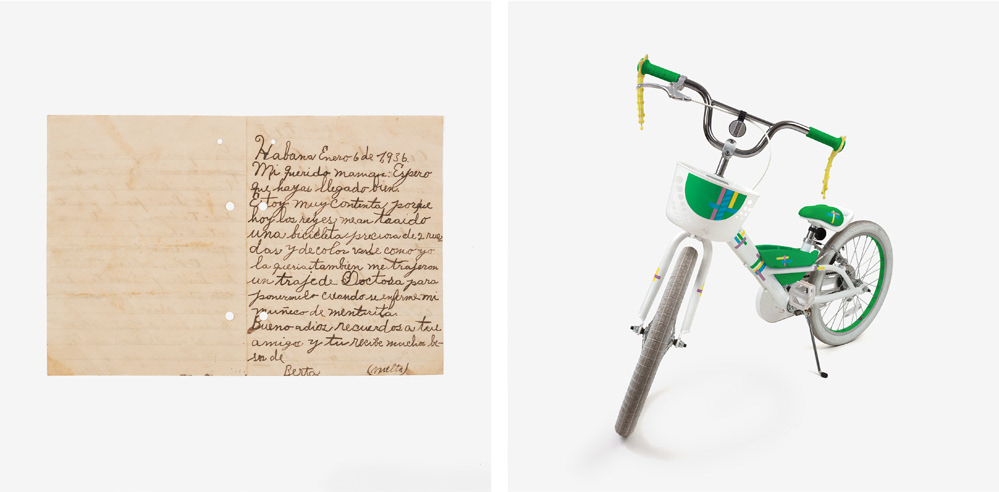 Habana Enero 6 de 1936.
Mi querido mamaqu: Espero
que hayas llegado bien.
Estoy muy contenta, porque
hoy los reyes me an traido
una bicicleta preciosa de 2 rue
das y de color verde como yo
la queria tambien me trajeron
un traje de Doctora para
ponermelo cuando se enferme mi
muñeco de mentirita.
Bueno adios recuerdos a tu
amiga y tu recibe muchos be-
sos de
Berta